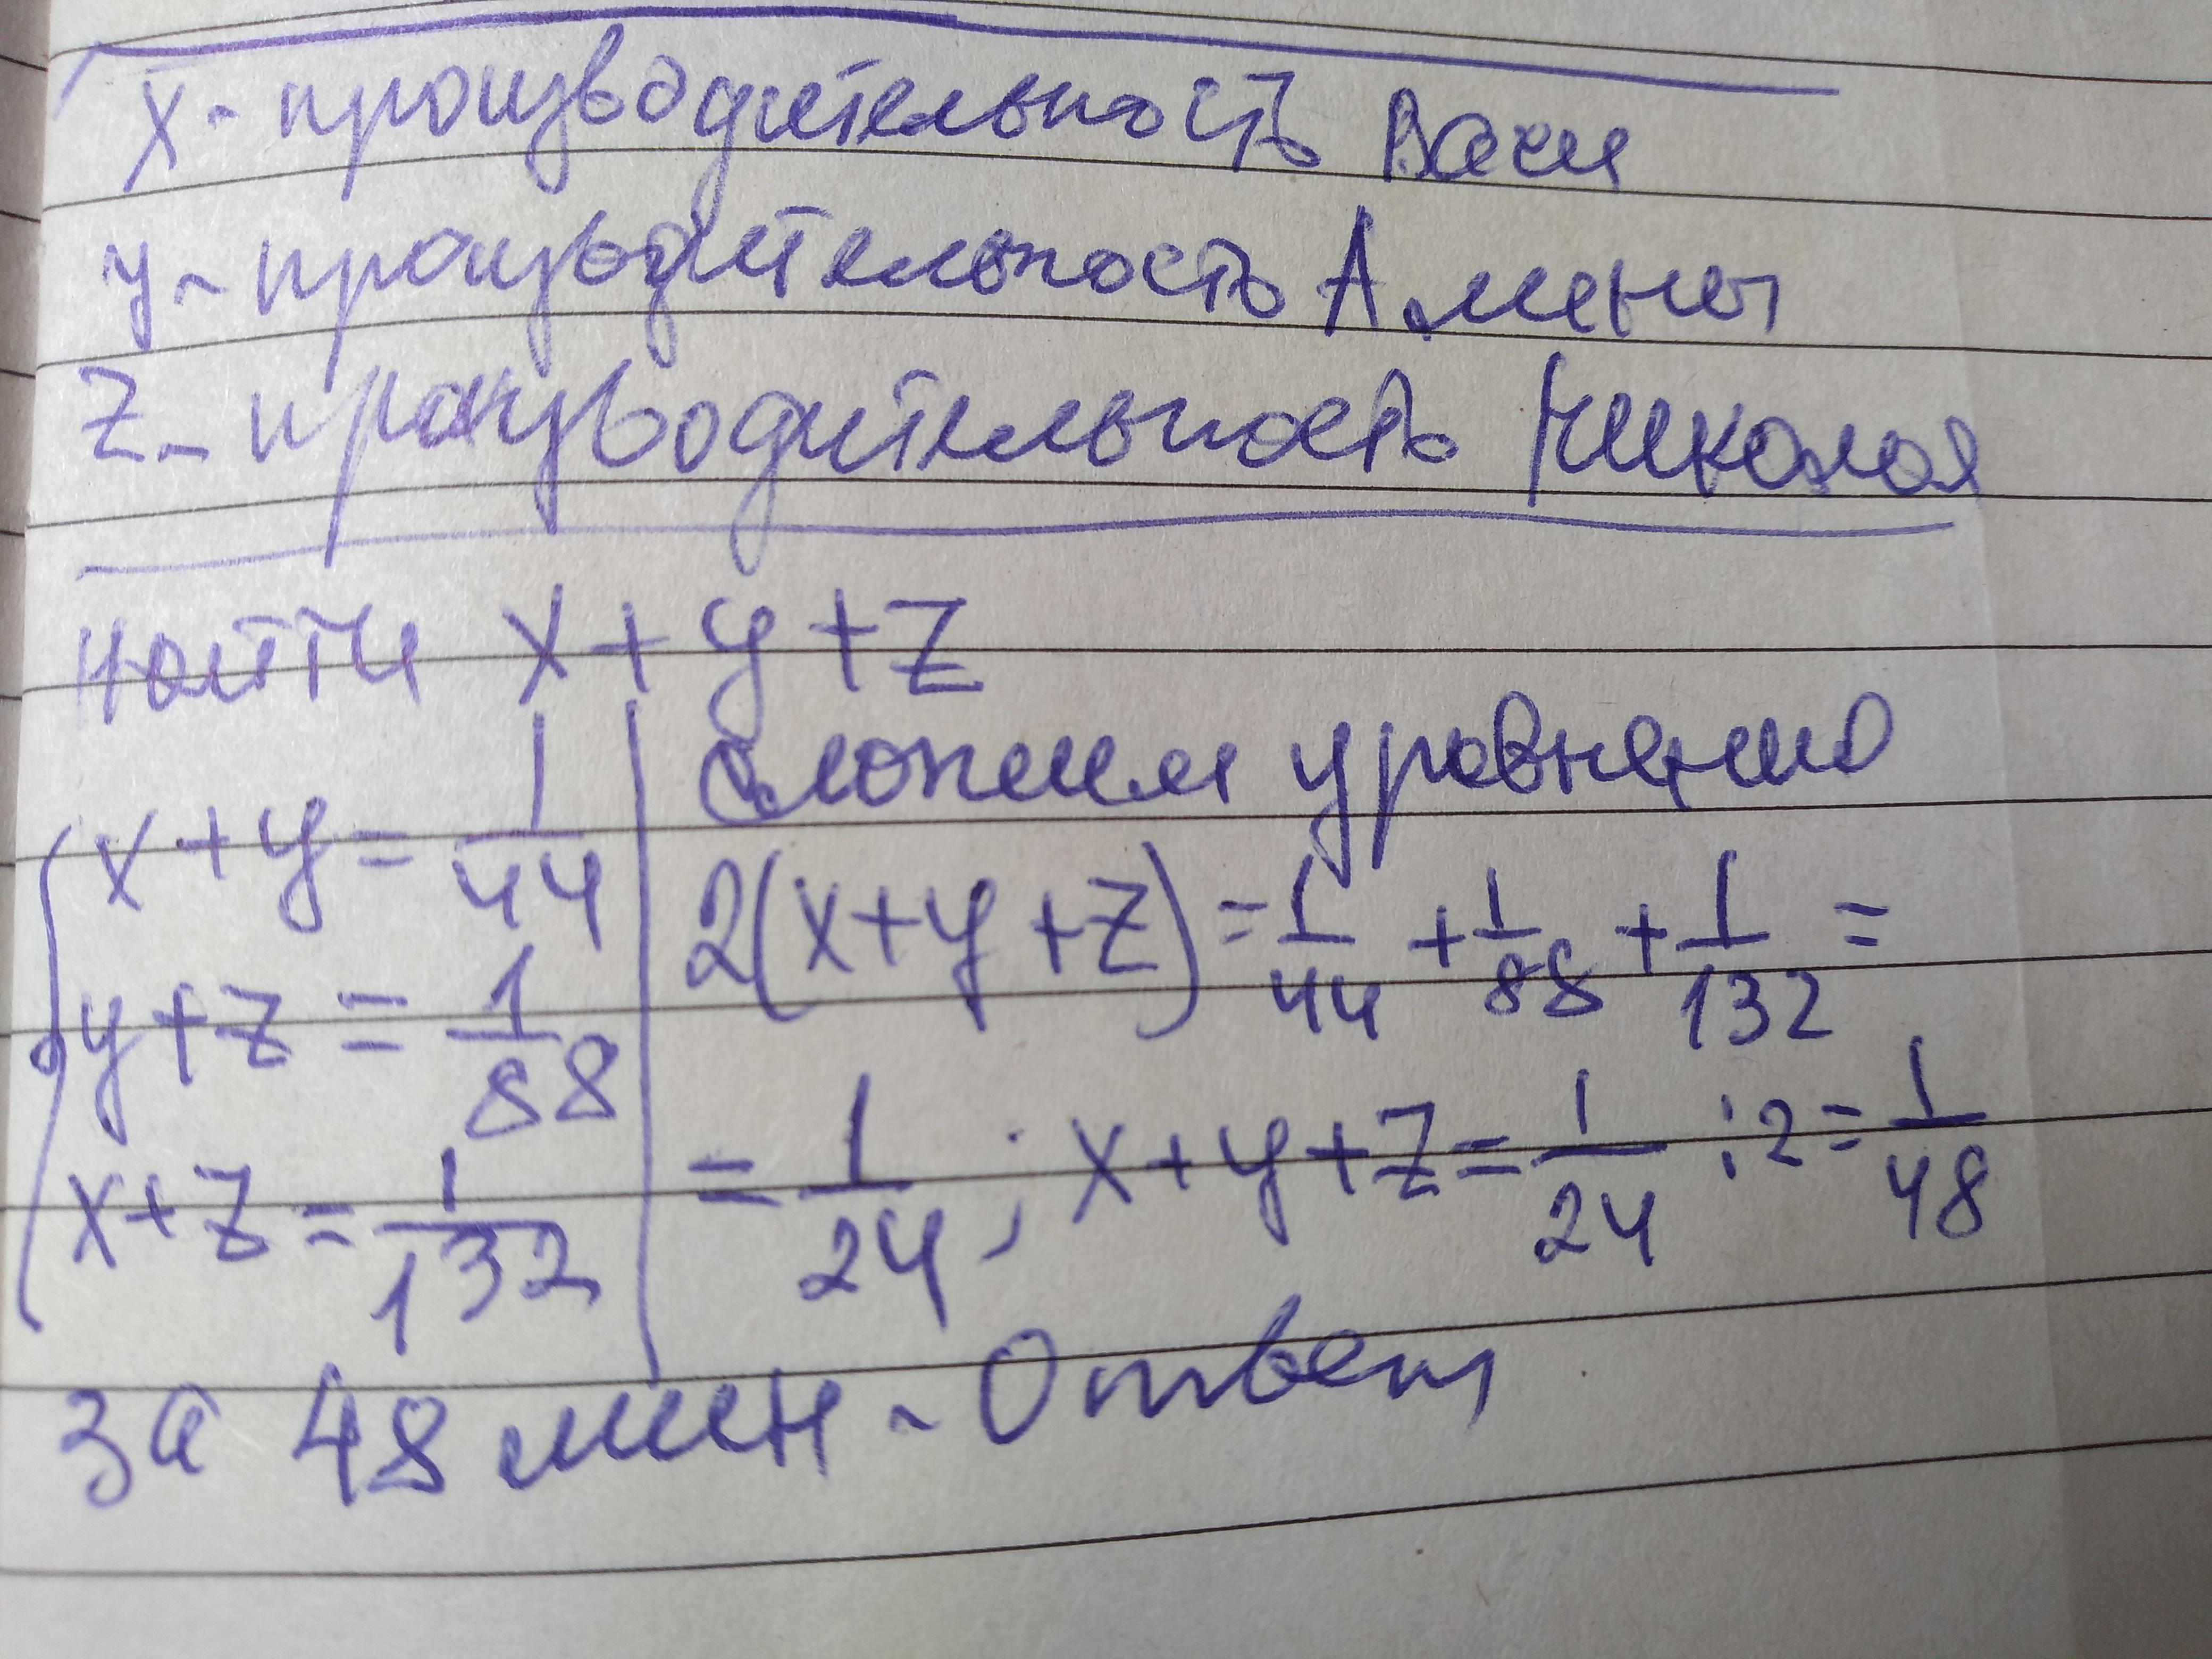 x - производительность Васи
y - производительность Алены
z - производительность Николая
найти x + y + z
x + y = 1/44
y + z = 1/88
x + z = 1/132
сложим уравнения
2(x + y + z) = 1/44 + 1/88 + 1/132 =
= 1/24 ; x + y + z = 1/24 : 2 = 1/48
за 48 мин - Ответ